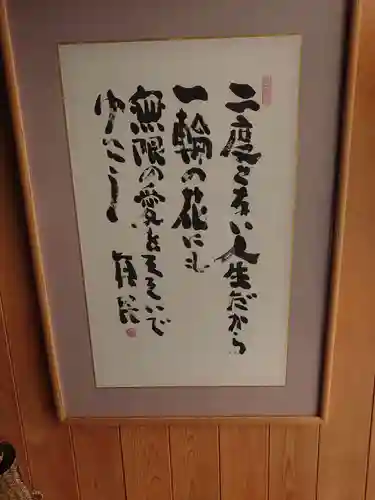 二度とない人生だから
一輪の花にも
無限の愛をそそいで
ゆこう
真民